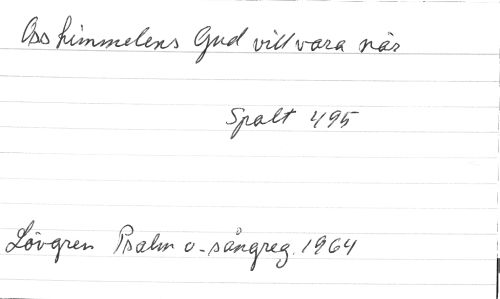 Oss himmelens Gud vill vara när
Spalt 495
Lövgren Psalm o. sångreg. 1964